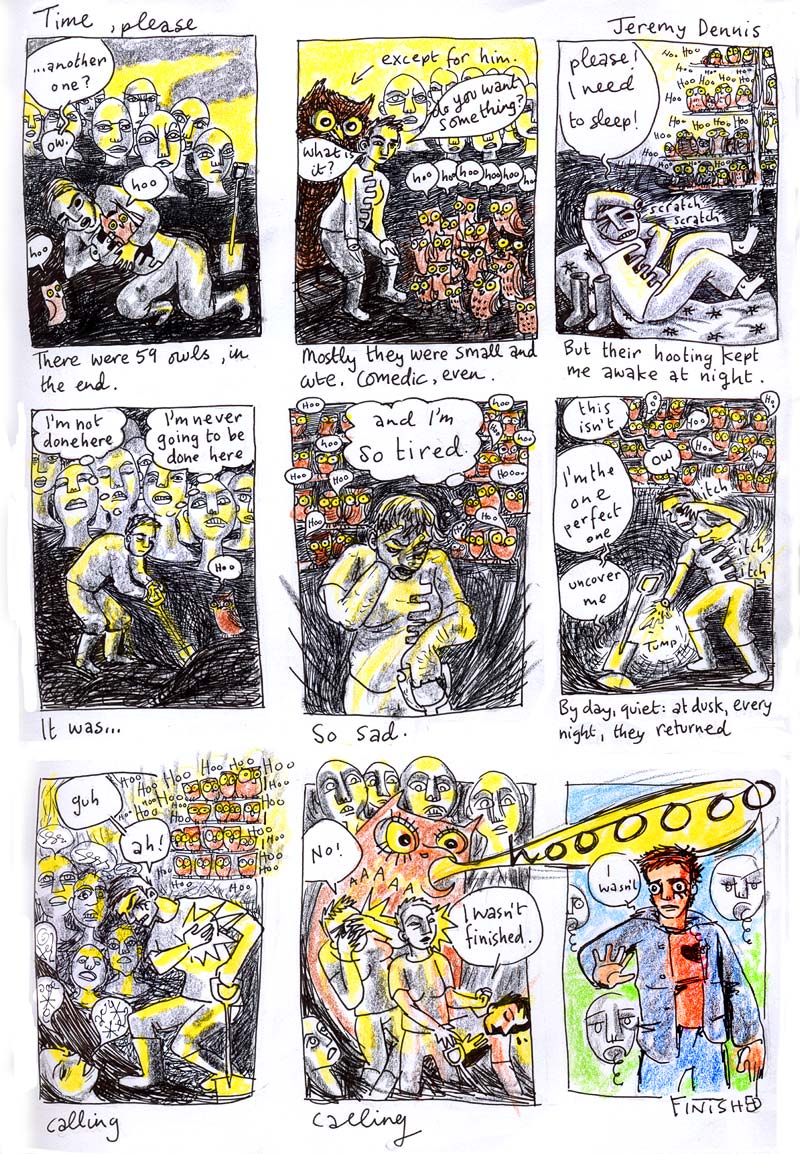 Time, please
Jeremy Dennis
...another
one?
ow.
hoo
hoo
There were 59 owls, in
the end.
except for him.
do you want
something?
what is
it?
hoo hoo hoo hoo hoo hoo
Mostly they were small and
cute. Comedic, even.
please!
I need
to sleep!
Hoo Hoo
Hoo Hoo Hoo
Hoo
Hoo Hoo Hoo Hoo
Hoo
Hoo Hoo Hoo Hoo
Hoo
scratch
scratch
But their hooting kept
me awake at night.
I'm not
done here
I'm never
going to be
done here
Hoo
It was...
and I'm
so tired.
hoo
hoo
Hoo
hoo
Hoo
Hoo
Hooo
Hoo
Hoo
So sad.
this
isn't
Hoo
Hoo
Hoo
Hoo
OW
itch
I'm the
one
perfect
one
itch
itch
uncover
me
TUMP
By day, quiet: at dusk, every
night, they returned
guh
ah!
Hoo Hoo Hoo Hoo Hoo
Hoo Hoo Hoo
Hoo Hoo
Hoo
Hoo
Hoo
Hoo Hoo Hoo
calling
No!
AAAAA
I wasn't
finished.
hooooooo
calling
I
wasn't
FINISHED